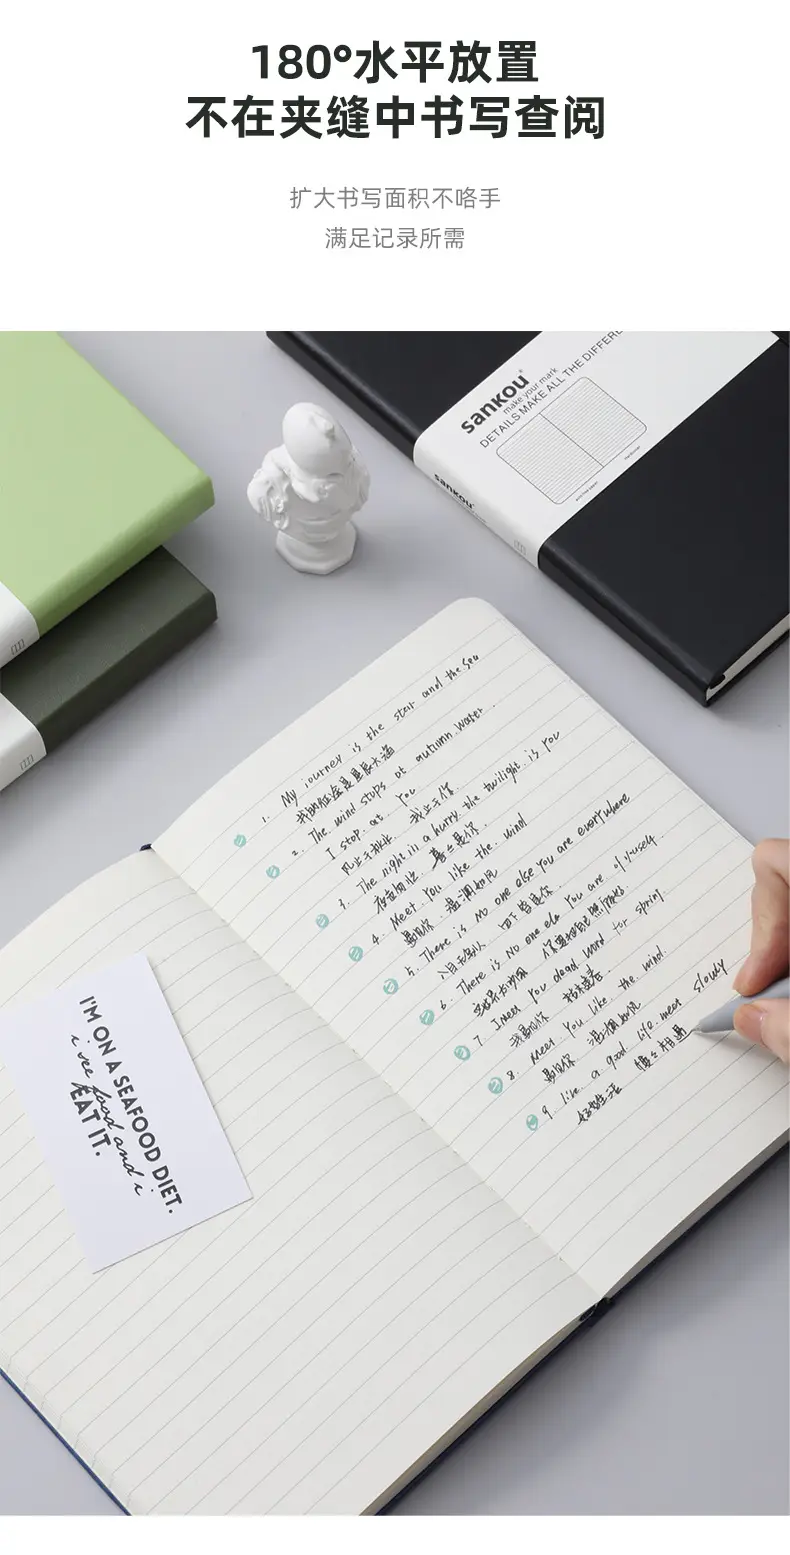 180°水平放置
不在夹缝中书写查阅
扩大书写面积不咯手
满足记录所需
sankou
make your mark
DETAILS MAKE ALL THE DIFFERE
sankou
1. My journey is the star and the sea
我的征途是星辰大海
2. The wind stops at autumn water.
I stop at you
风止于秋水 我止于你
3. The night in a hurry. the twilight is you
夜色匆忙 暮色是你
4. Meet you like the wind
遇见你 温润如风
5. There is no one else you are everywhere
6. There is no one else You are of yourself
7. I meet you dead wood for spring
我遇见你 枯木逢春
8. Meet You like the wind
遇见你 温润如风
9. like a good life meet slowly
好好生活 慢慢相遇
I'M ON A SEAFOOD DIET.
i see food and i
EAT IT.